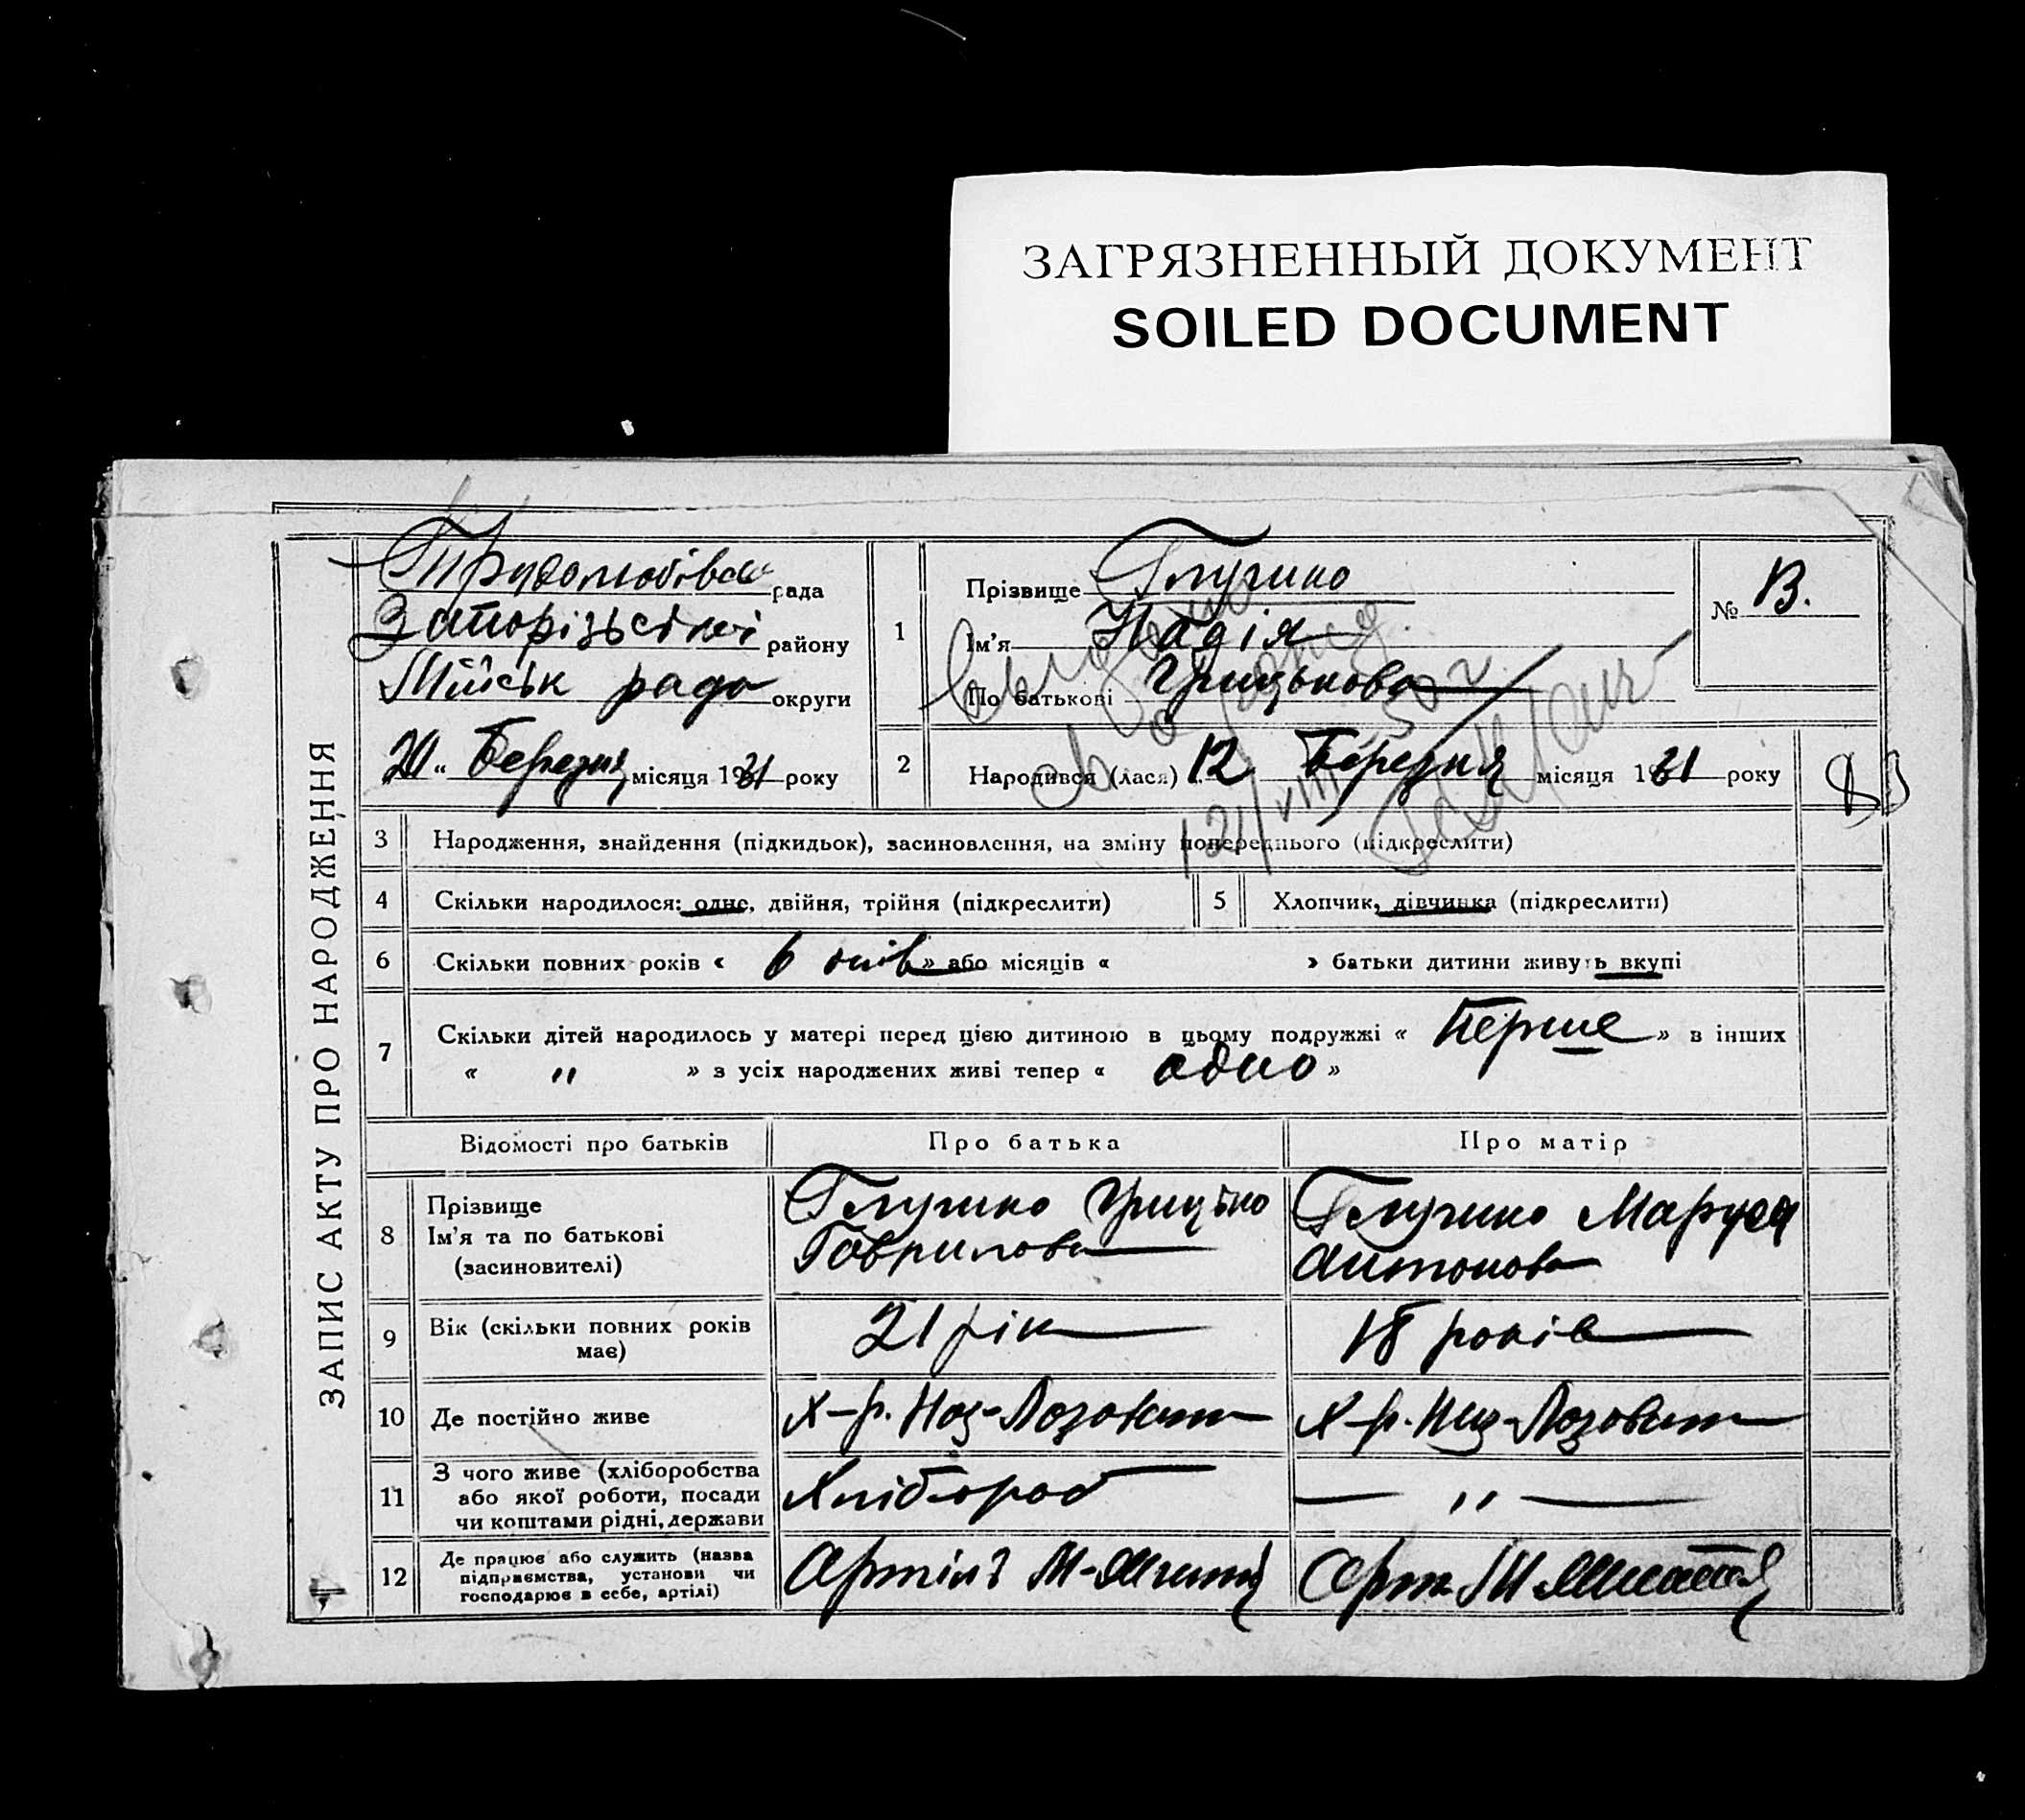 ЗАГРЯЗНЕННЫЙ ДОКУМЕНТ
SOILED DOCUMENT
ЗАПИС АКТУ ПРО НАРОДЖЕННЯ
рада
Запорізької району
Міськ рада округи
20 „ Березня місяця 1931 року
1
Прізвище
Ім'я Надія
По батькові Грицькова
№ 13.
2
Народився (лася) 12 Березня місяця 1931 року
3 Народження, знайдення (підкидьок), засиновлення, на зміну попереднього (підкреслити)
4 Скільки народилося: одне, двійня, трійня (підкреслити)
5 Хлопчик, дівчинка (підкреслити)
6 Скільки повних років « 6 » або місяців « » батьки дитини живуть вкупі
7 Скільки дітей народилось у матері перед цією дитиною в цьому подружжі « Перше » в інших
« " » з усіх народжених живі тепер « одно »
Відомості про батьків
Про батька
Про матір
8 Прізвище
Ім'я та по батькові
(засиновителі)
Грицько
Гаврилова
Маруся
Антонова
9 Вік (скільки повних років
має)
21 рік
18 років
10 Де постійно живе
Х-р.
Х-р.
11 З чого живе (хліборобства
або якої роботи, посади
чи коштами рідні, держави
Хлібороб
— " —
12 Де працює або служить (назва
підприємства, установи чи
господарює в себе, артілі)